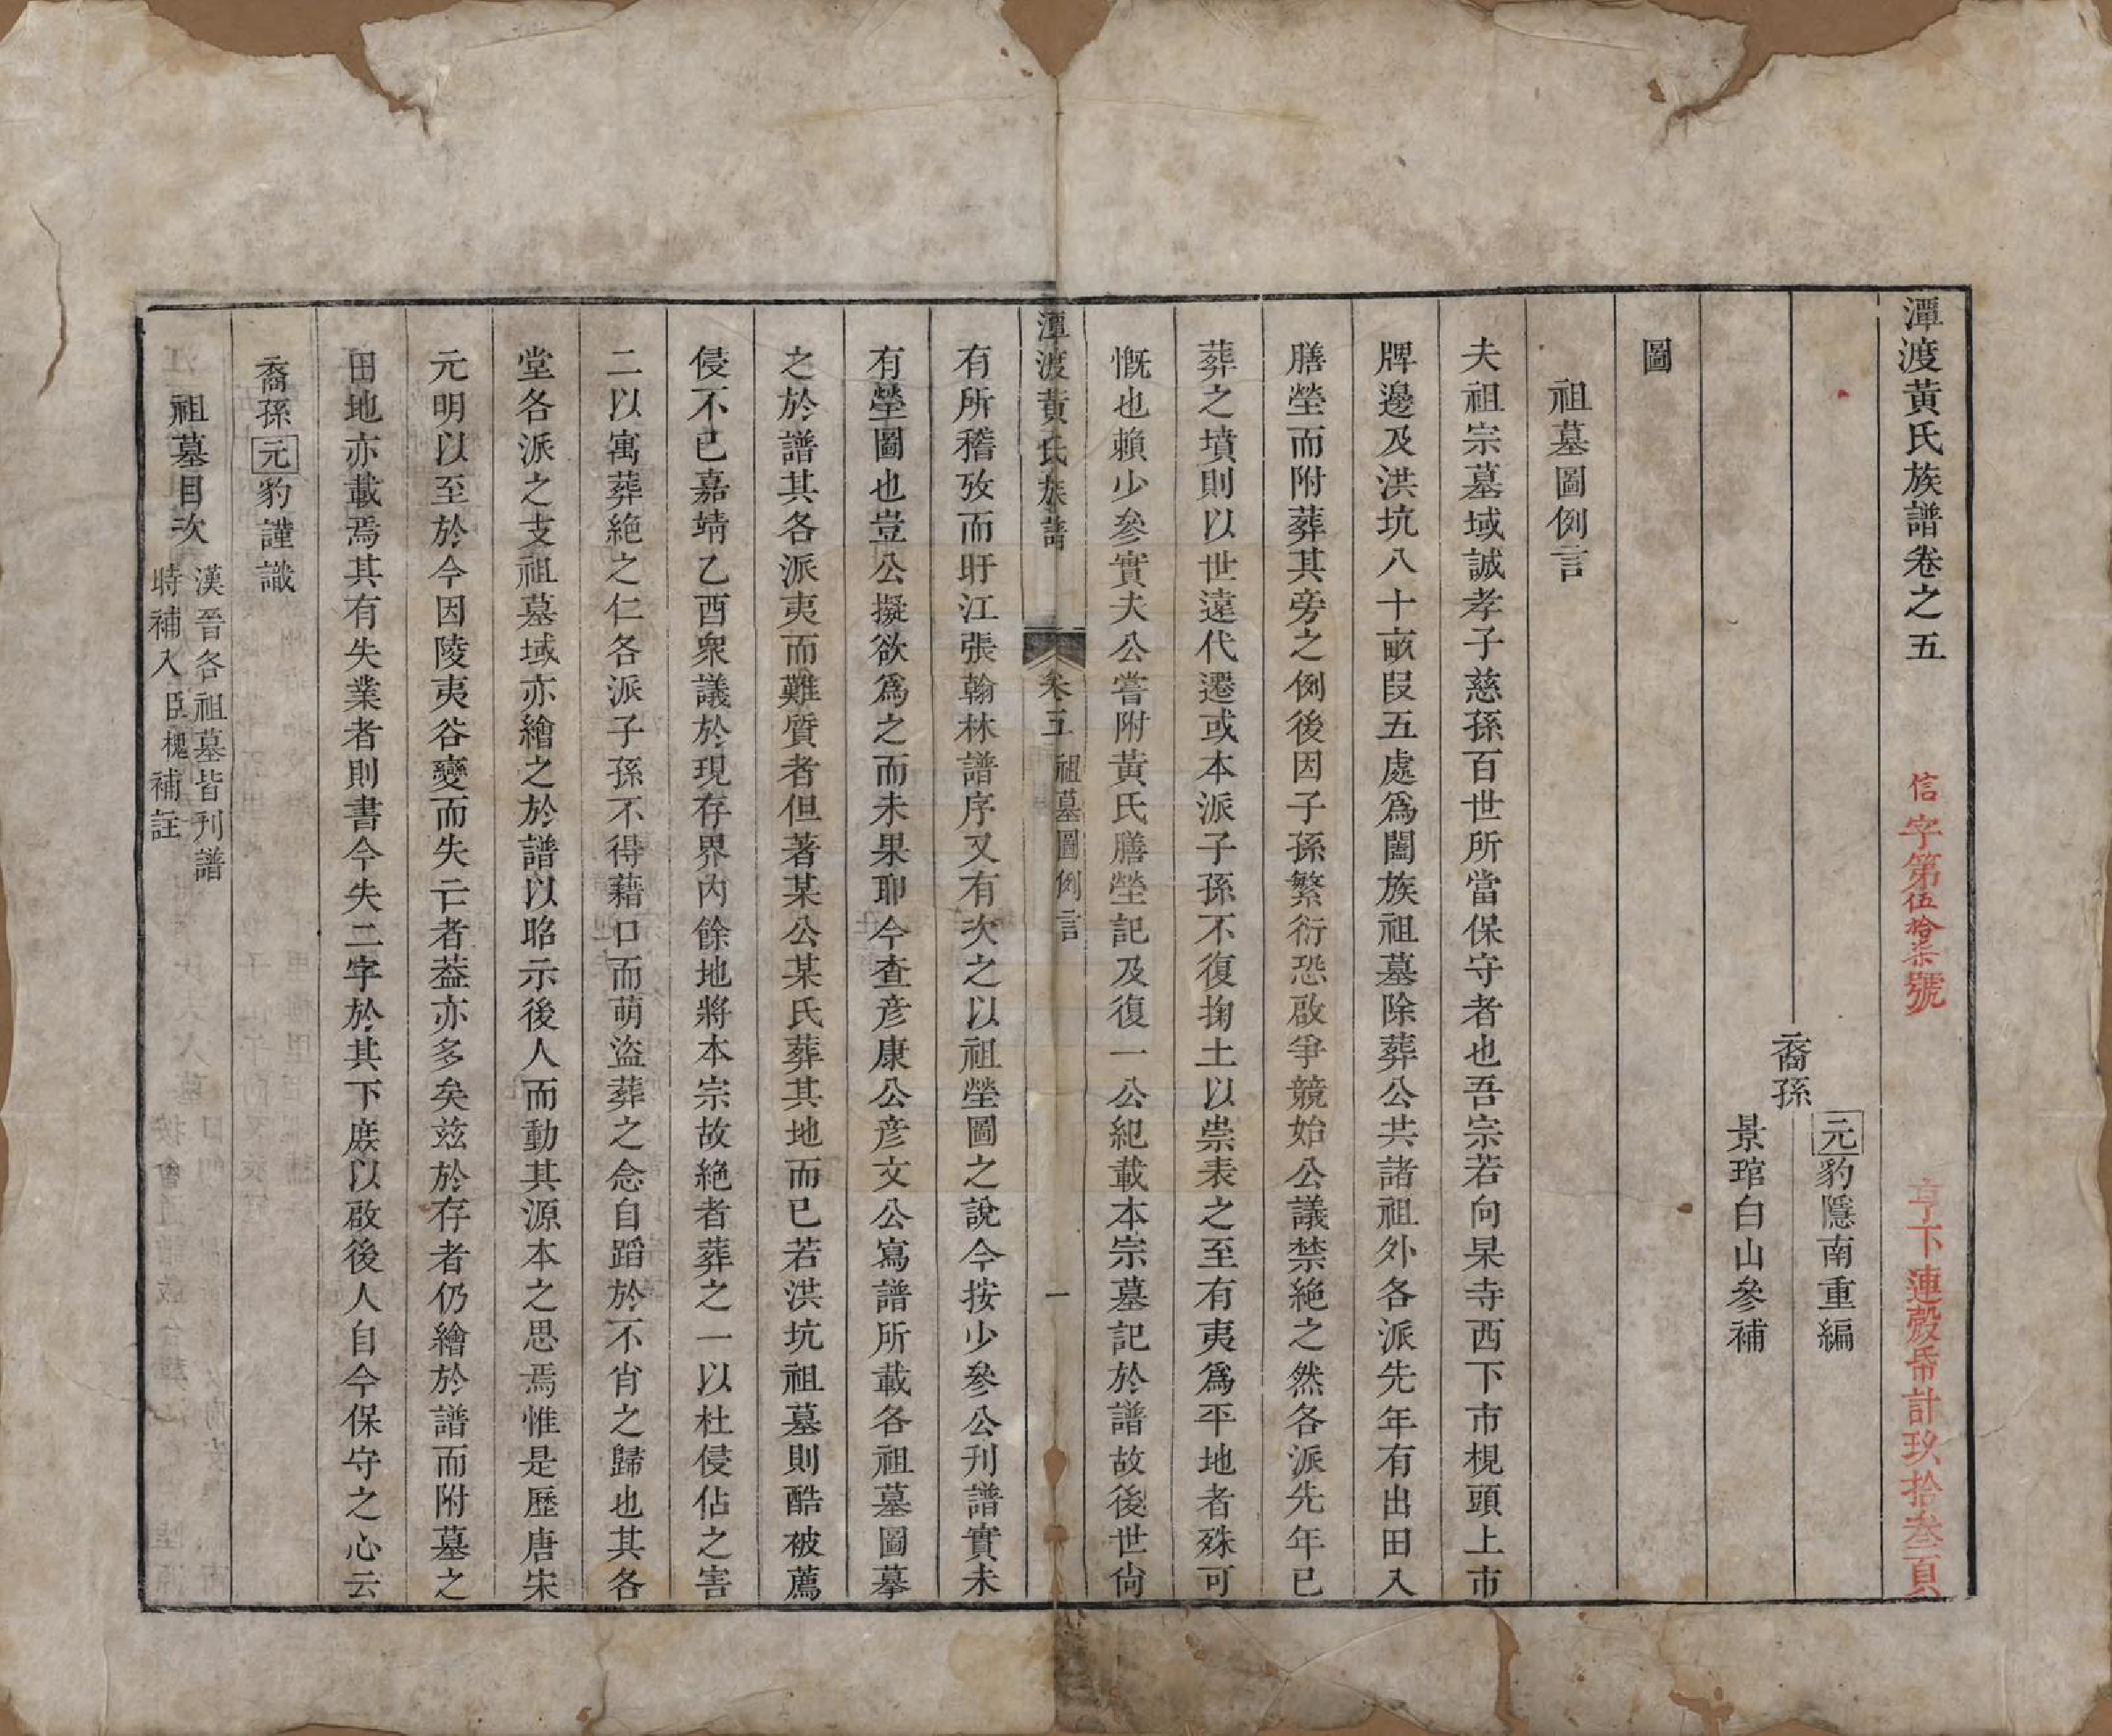 潭渡黃氏族譜卷之五
信字第伍拾柒號
亨下連殼帋計玖拾叁頁
裔孫
元豹隱南重編
景琯白山參補
圖
祖墓圖例言
夫祖宗墓域誠孝子慈孫百世所當保守者也吾宗若向杲寺西下市梘頭上市
牌邊及洪坑八十畝叚五處爲闔族祖墓除葬公共諸祖外各派先年有出田入
膳塋而附葬其旁之例後因子孫繁衍恐啟爭競始公議禁絕之然各派先年已
葬之墳則以世遠代遷或本派子孫不復掬土以崇表之至有夷爲平地者殊可
慨也賴少參實夫公嘗附黃氏膳塋記及復一公紀載本宗墓記於譜故後世尙
潭渡黃氏族譜
卷五
祖墓圖例言
一
有所稽攷而旴江張翰林譜序又有次之以祖塋圖之說今按少參公刊譜實未
有塋圖也豈公擬欲爲之而未果耶今查彦康公彦文公寫譜所載各祖墓圖摹
之於譜其各派夷而難質者但著某公某氏葬其地而已若洪坑祖墓則酷被薦
侵不已嘉靖乙酉衆議於現存界內餘地將本宗故絕者葬之一以杜侵佔之害
二以寓葬絕之仁各派子孫不得藉口而萌盜葬之念自蹈於不肖之歸也其各
堂各派之支祖墓域亦繪之於譜以昭示後人而動其源本之思焉惟是歷唐宋
元明以至於今因陵夷谷變而失亡者葢亦多矣兹於存者仍繪於譜而附墓之
田地亦載焉其有失業者則書今失二字於其下庻以啟後人自今保守之心云
裔孫元豹謹識
祖墓目次
漢晉各祖墓皆刊譜
時補入臣槐補註